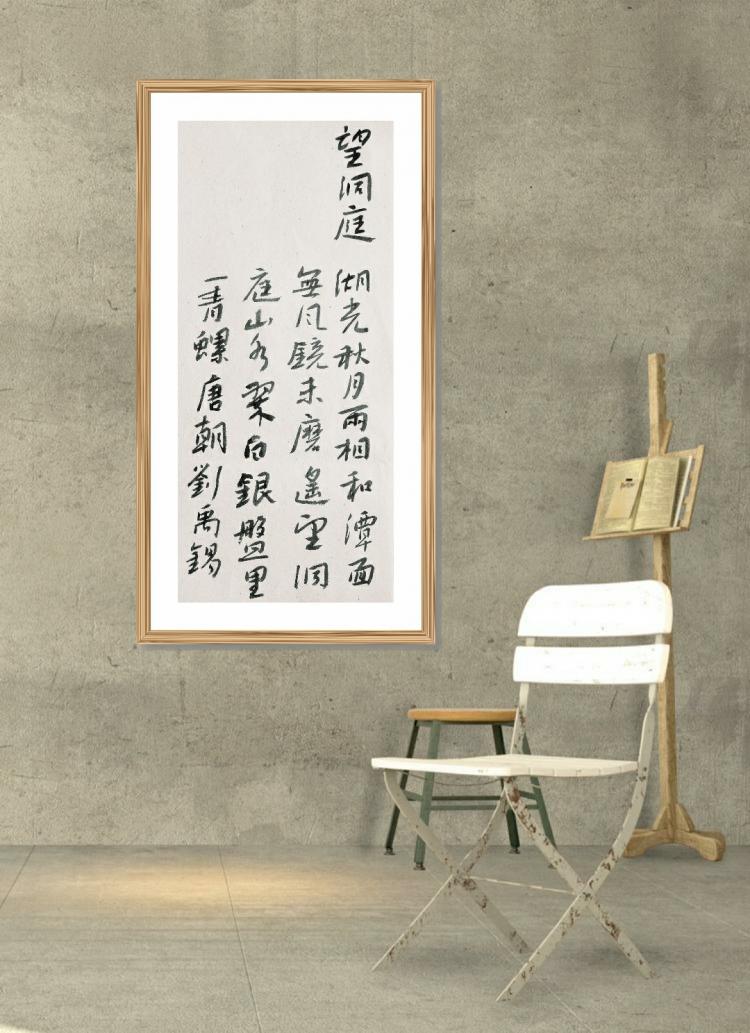 望洞庭 湖光秋月兩相和潭面
無风鏡未磨遙望洞
庭山水翠白銀盤里
一青螺唐朝劉禹錫